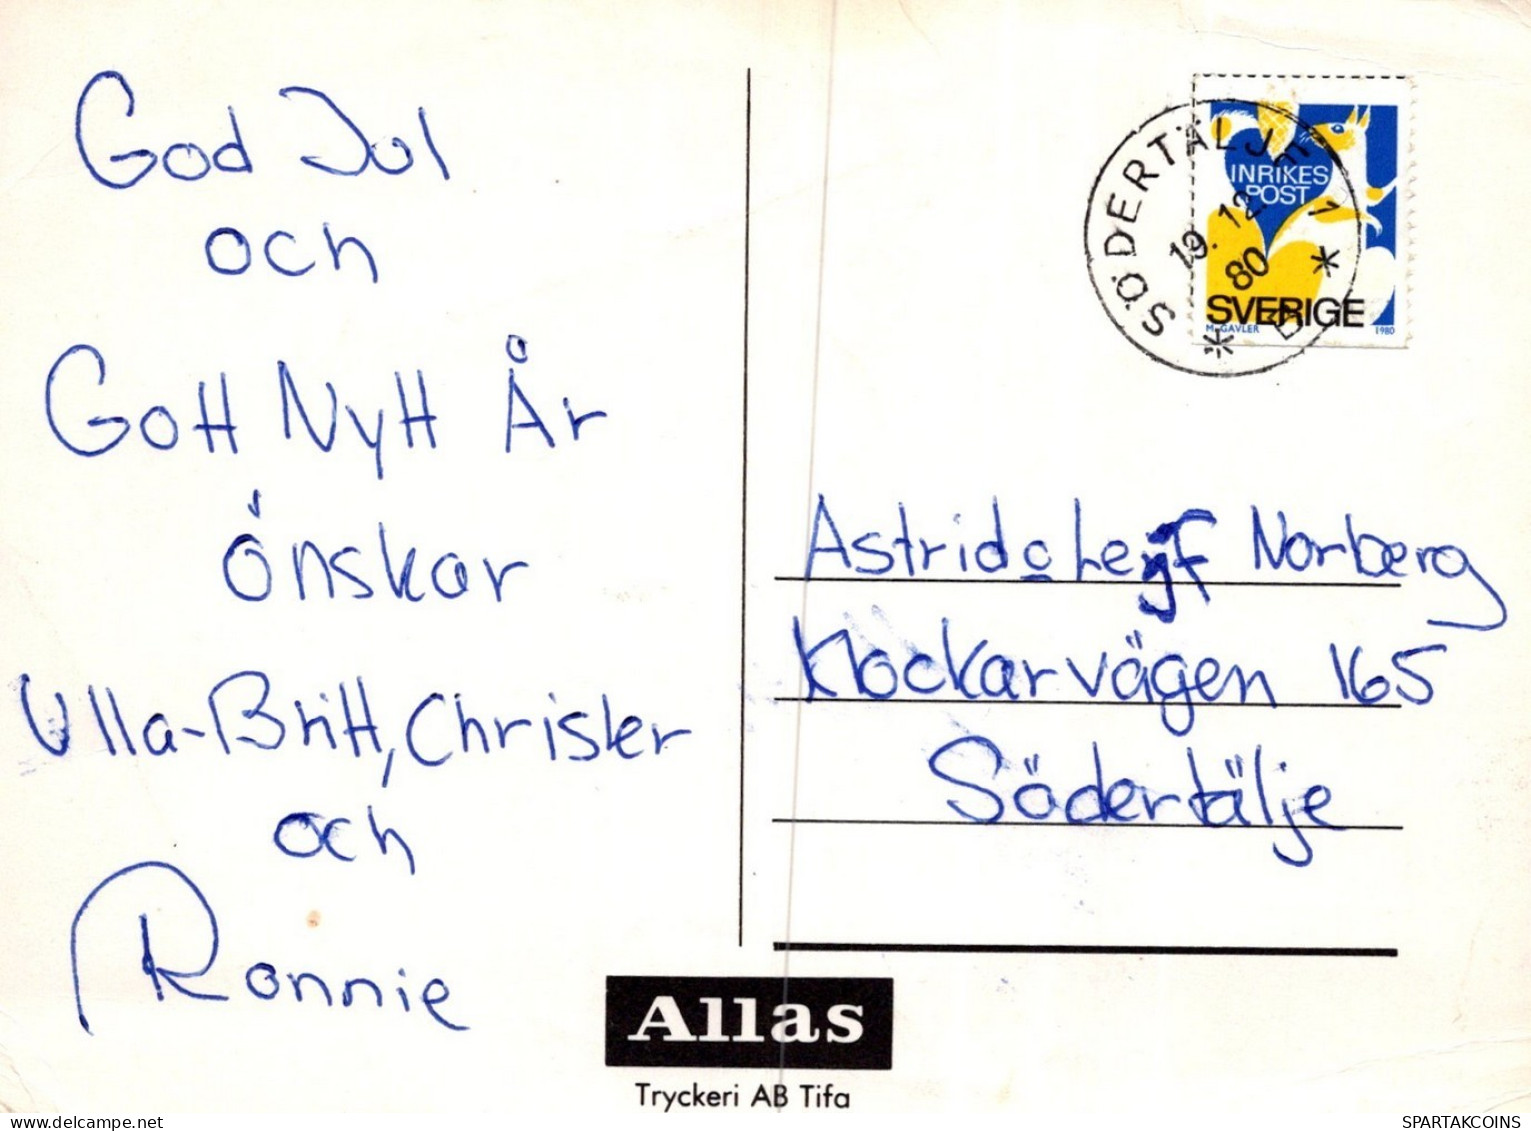 God Jul
och
Gott Nytt År
önskar
Ulla-Britt, Christer
och
Ronnie
SÖDERTÄLJE 1
19. 12.
80
INRIKES
POST
SVERIGE
M. GAVLER 1980
Astrid o Leif Norberg
Klockarvägen 165
Södertälje
Allas
Tryckeri AB Tifa
SPARTAKCOINS